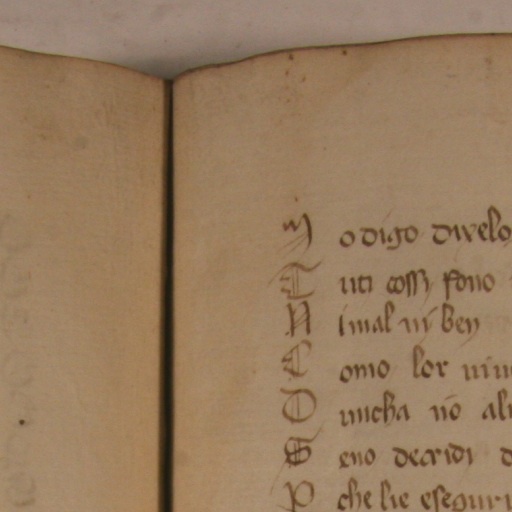 M odigo dixelo
T uti cossi sono
N i mal ni ben
C omo lor viu
O nncha nō al
S eno decridi d
P che lie eseguri